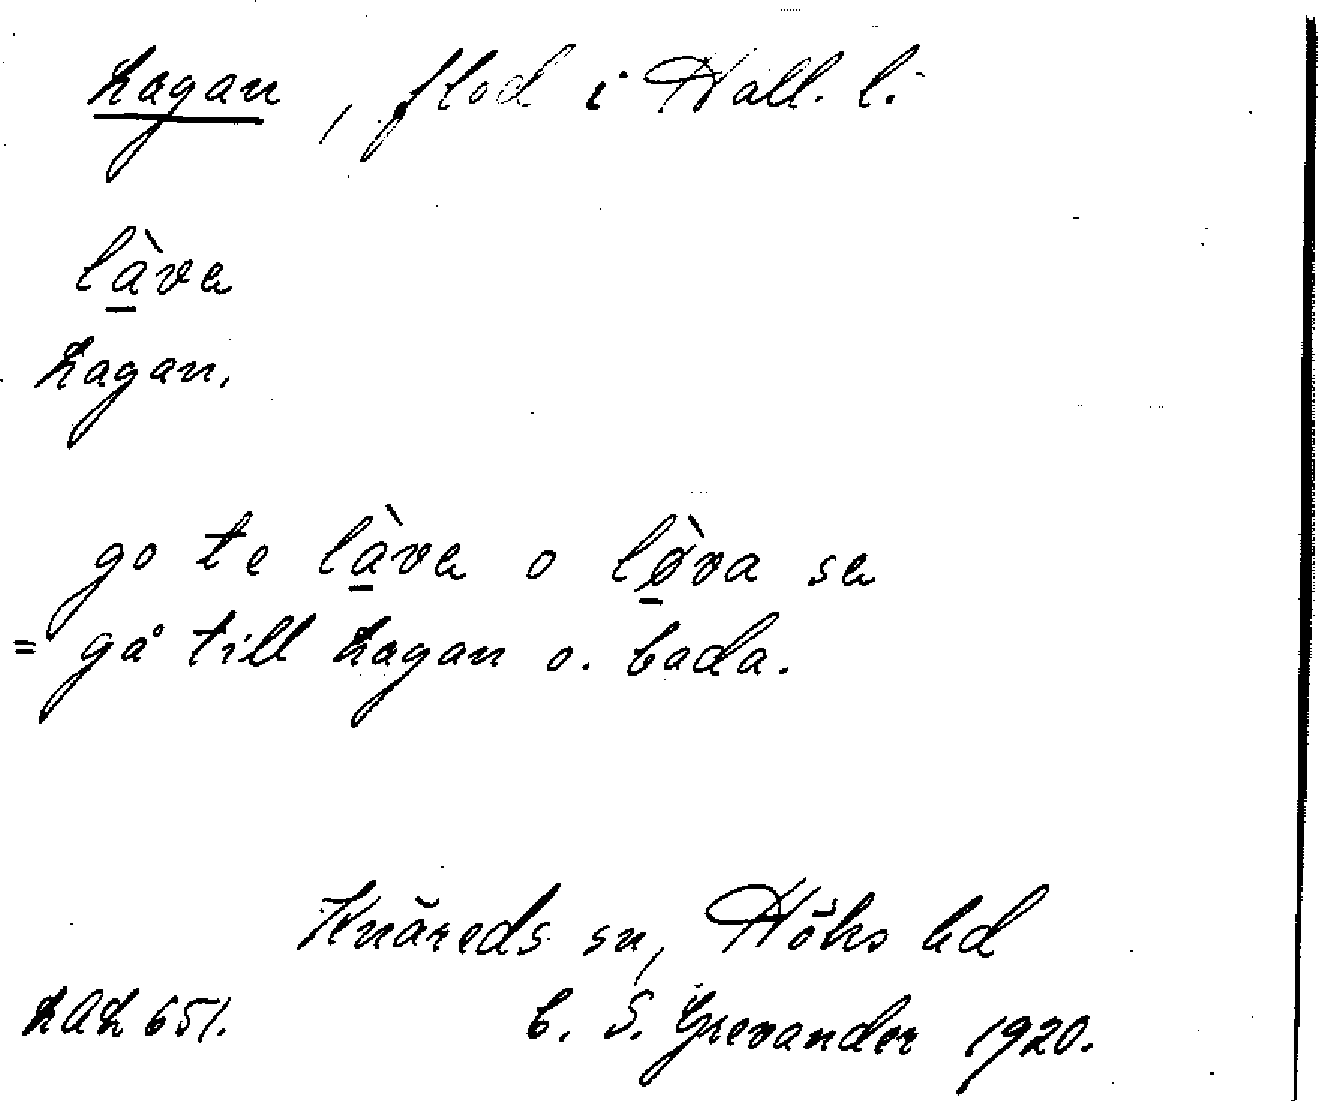 Lagan, flod i Hall. l.
làva
Lagan.
go te làva o lòva sa
= gå till Lagan o. bada.
Knäreds sn, Höks hd
LAL 651. C. S. Grevander 1920.